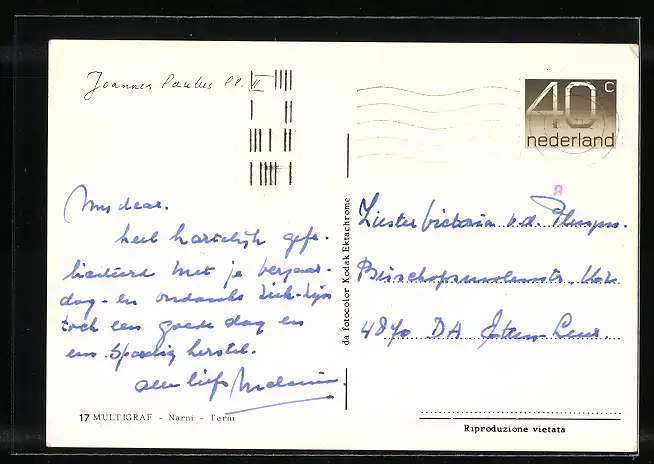 Joannes Paulus PP. II
40 c
nederland
My dear.
heel hartelijk gefe-
liciteerd met je verjaar-
dag - en ondanks ziek-zijn
toch een goede dag en
een spoedig herstel.
alle liefs
da fotocolor Kodak Ektachrome
8
Zuster Victoria v.d.
4870 DA Etten Leur.
17 MULTIGRAF - Narni - Terni
Riproduzione vietata